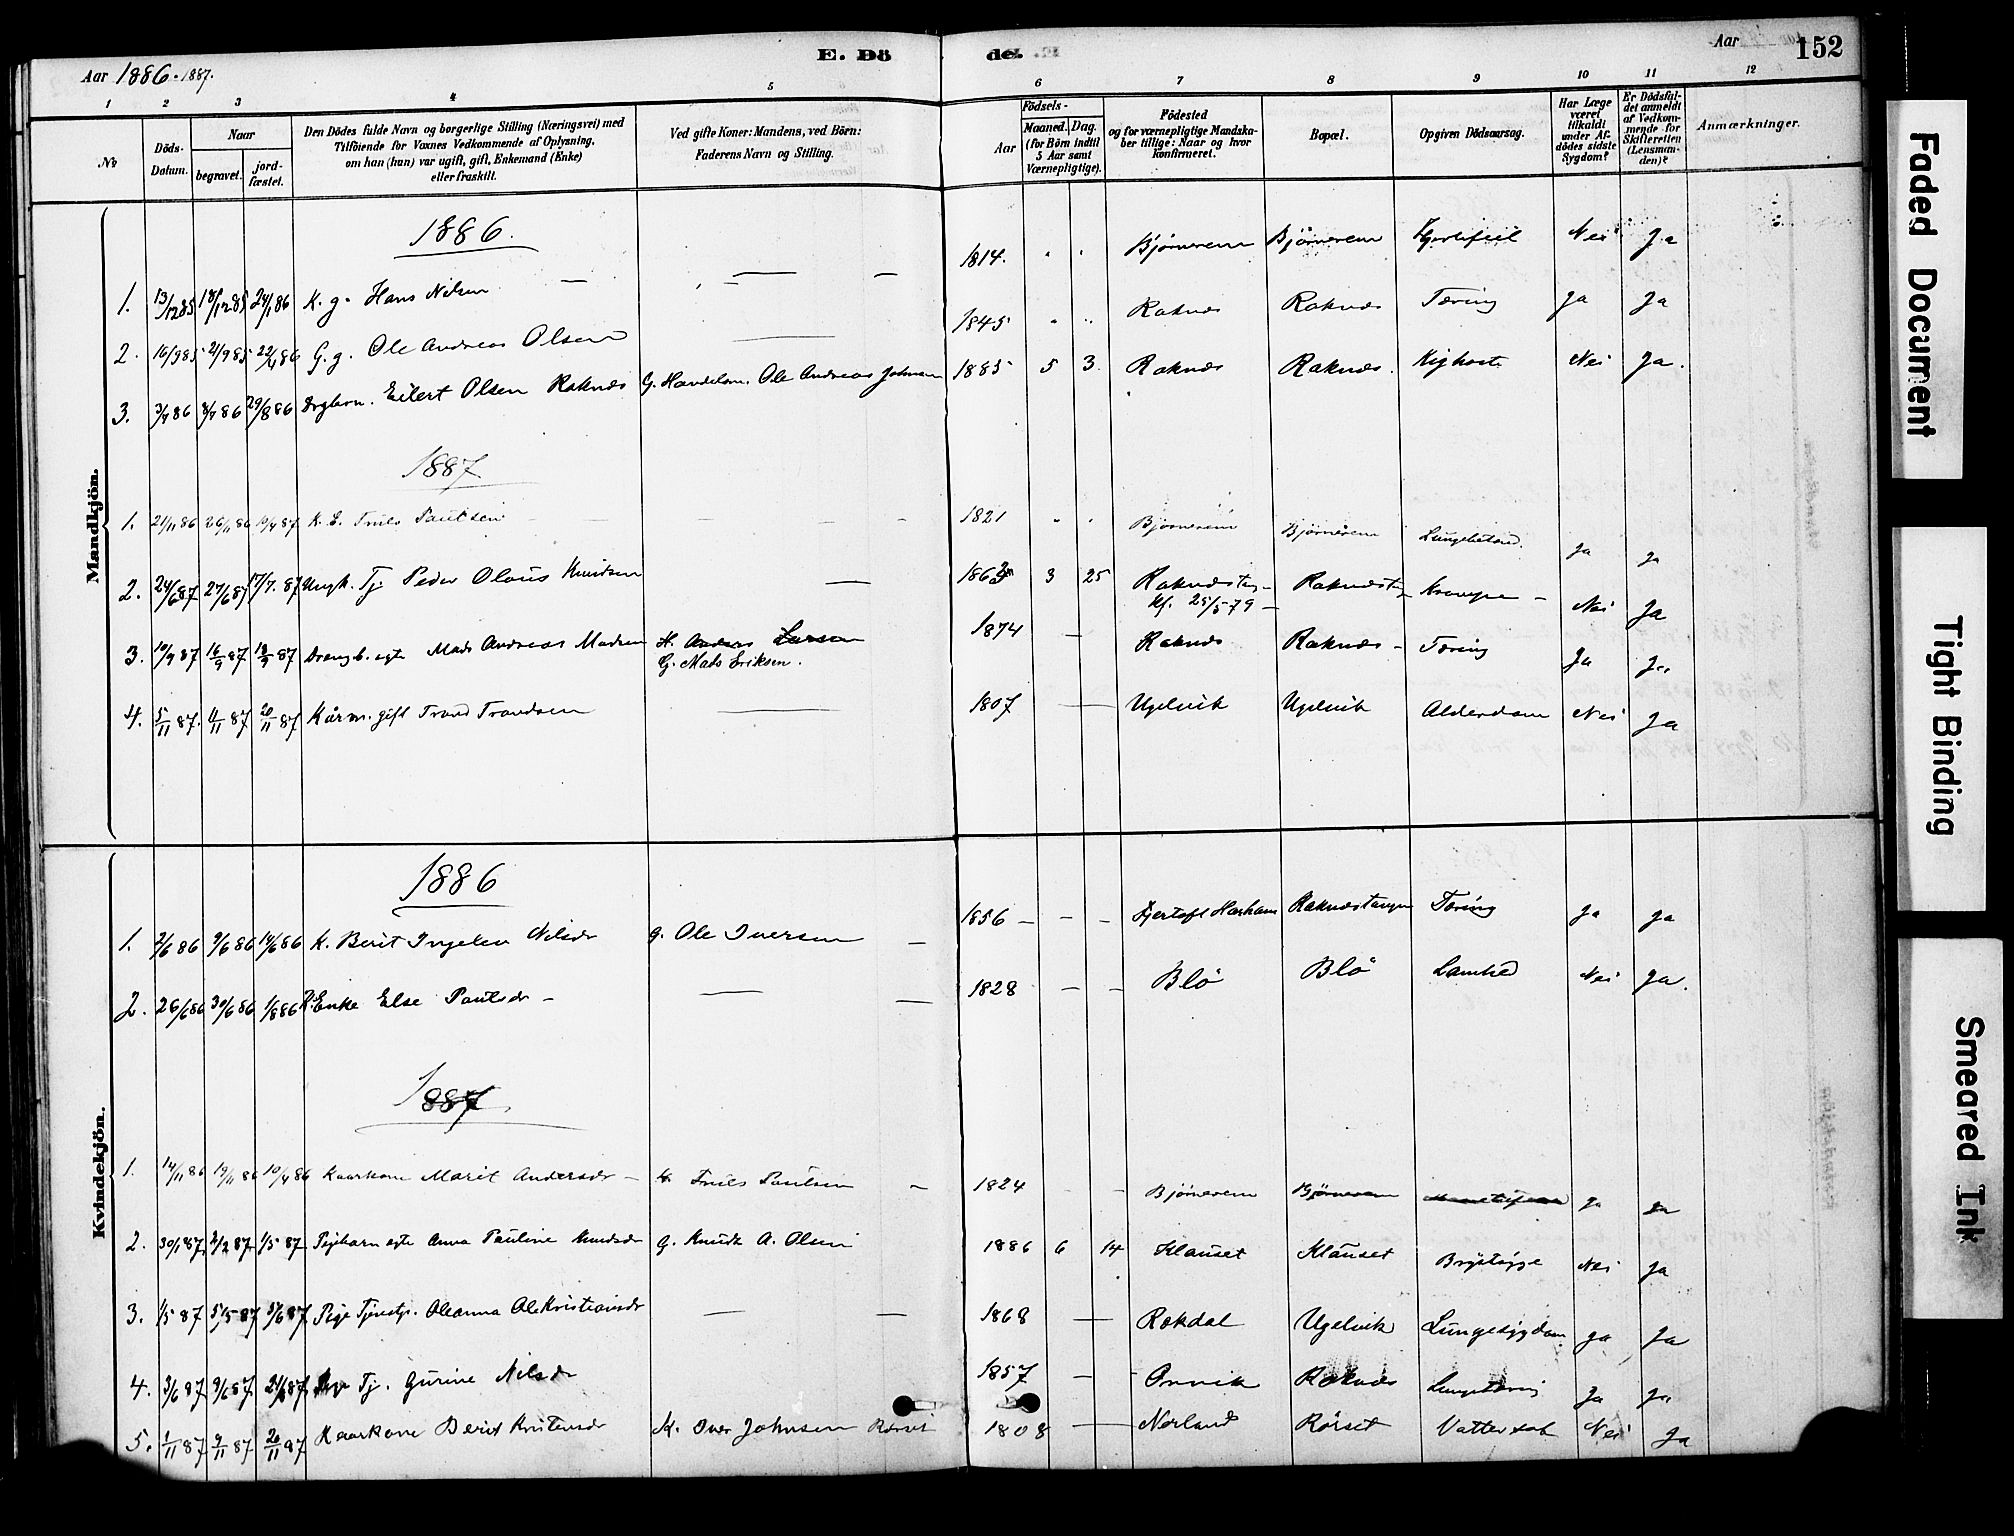 Aar 1886-1887.
E. Dö
de.
Aar
152
1 2 3 4 5 6 7 8 9 10 11 12
No
Döds-
Datum.
Naar
begravet.
jord-
fæstet.
Den Dödes fulde Navn og borgerlige Stilling (Næringsvei) med
Tilföiende for Voxnes Vedkommende af Oplysning,
om han (hun) var ugift, gift, Enkemand (Enke)
eller fraskilt.
Ved gifte Koner: Mandens, ved Börn:
Faderens Navn og Stilling.
Aar
Födsels-
Maaned. Dag.
(for Börn indtil
5 Aar samt
Værnepligtige).
Födested
og for værnepligtige Mandska-
ber tillige: Naar og hvor
konfirmeret.
Bopæl.
Opgiven Dödsaarsag.
Har Læge
været
tilkaldt
under Af-
dödes sidste
Sygdom?
Er Dödsfal-
det anmeldt
af Vedkom-
mende for
Skifteretten
(Lensman-
den)?
Anmærkninger.
Mandkjön.
1886.
1. 13/12 85 18/12 85 24/1 86 K. g. Hans Nilsen — 1814. Bjørnerem Bjørnerem Nei Ja
2. 16/9 85 21/9 85 22/4 86 G. g. Ole Andreas Olsen — 1845 Raknæs Raknæs Tæring Ja Ja
3. 3/7 86 8/7 86 29/8 86 Drgbarn. Eilert Olsen Raknæs G. Handelsm. Ole Andreas Johnsen 1885 5 3 Raknæs Raknæs. Kighoste Nei Ja.
1887
1. 21/11 86 26/11 86 10/4 87 K. E. Truls Paulsen — 1821 Bjørnerem Bjørnerem Ja Ja
2. 24/6 87 27/6 87 17/7. 87 Ungk. Tj. Peder Olaus Knudsen — 3 25 Raknæstang Raknæstg Krampe — Nei Ja
Kf. 25/5 79 —
3. 10/9 87 16/9 87 18/9 87 Drengb. egte Mads Andreas Madsen H. Anders Larsen 1874 — Raknæs Raknæs — Tæring Ja Ja
G. Mads Eriksen.
4. 5/11 87. 11/11 87 20/11 87 Kårm. gift Trond Trondsen — 1807 — Ugelvik Ugelvik Alderdom Nei Ja
Kvindekjön.
1886
1. 2/6 86 9/6 86 14/6 86 K. Berit Ingeline Nilsdr G. Ole Iversen — 1856 — Fjertoft Harham Raknæstangen Tæring Ja Ja
2. 26/6 86 30/6 86 1/8 86 Enke Else Paulsdr — 1828 — Blö Blö Lamhed Nei Ja.
1887
1. 14/11 86 19/11 86 10/4 86 Kaarkone Marit Andersdr — K. Truls Paulsen — 1824 — Bjørnerem Bjørnerem Ja Ja
2. 30/1 87. 2/2 87. 1/5 87 Pigebarn egte Anna Pauline Knudsdr G. Knudt A. Olsen 1886 6 14 Klauset Klauset Brystsyge Nei Ja
3. 1/5 87 5/5 87 5/6 87 Pige Tjenstp. Oleanna OleKristiansdr — 1868 — Rokdal Ugelvik Lungesygdom Ja Ja
4. 3/6 87 9/6 87 Tj. Gurine Nilsdr 1857 — Orvik Raknæs Lungetæring Ja Ja
5. 1/11 87 9/11 87 20/11 87 Kaarkone Berit Kristensdr K. Iver Johnsen Rørset 1808 — Norland Rörset Vattersot Nei Ja
Faded Document
Tight Binding
Smeared Ink